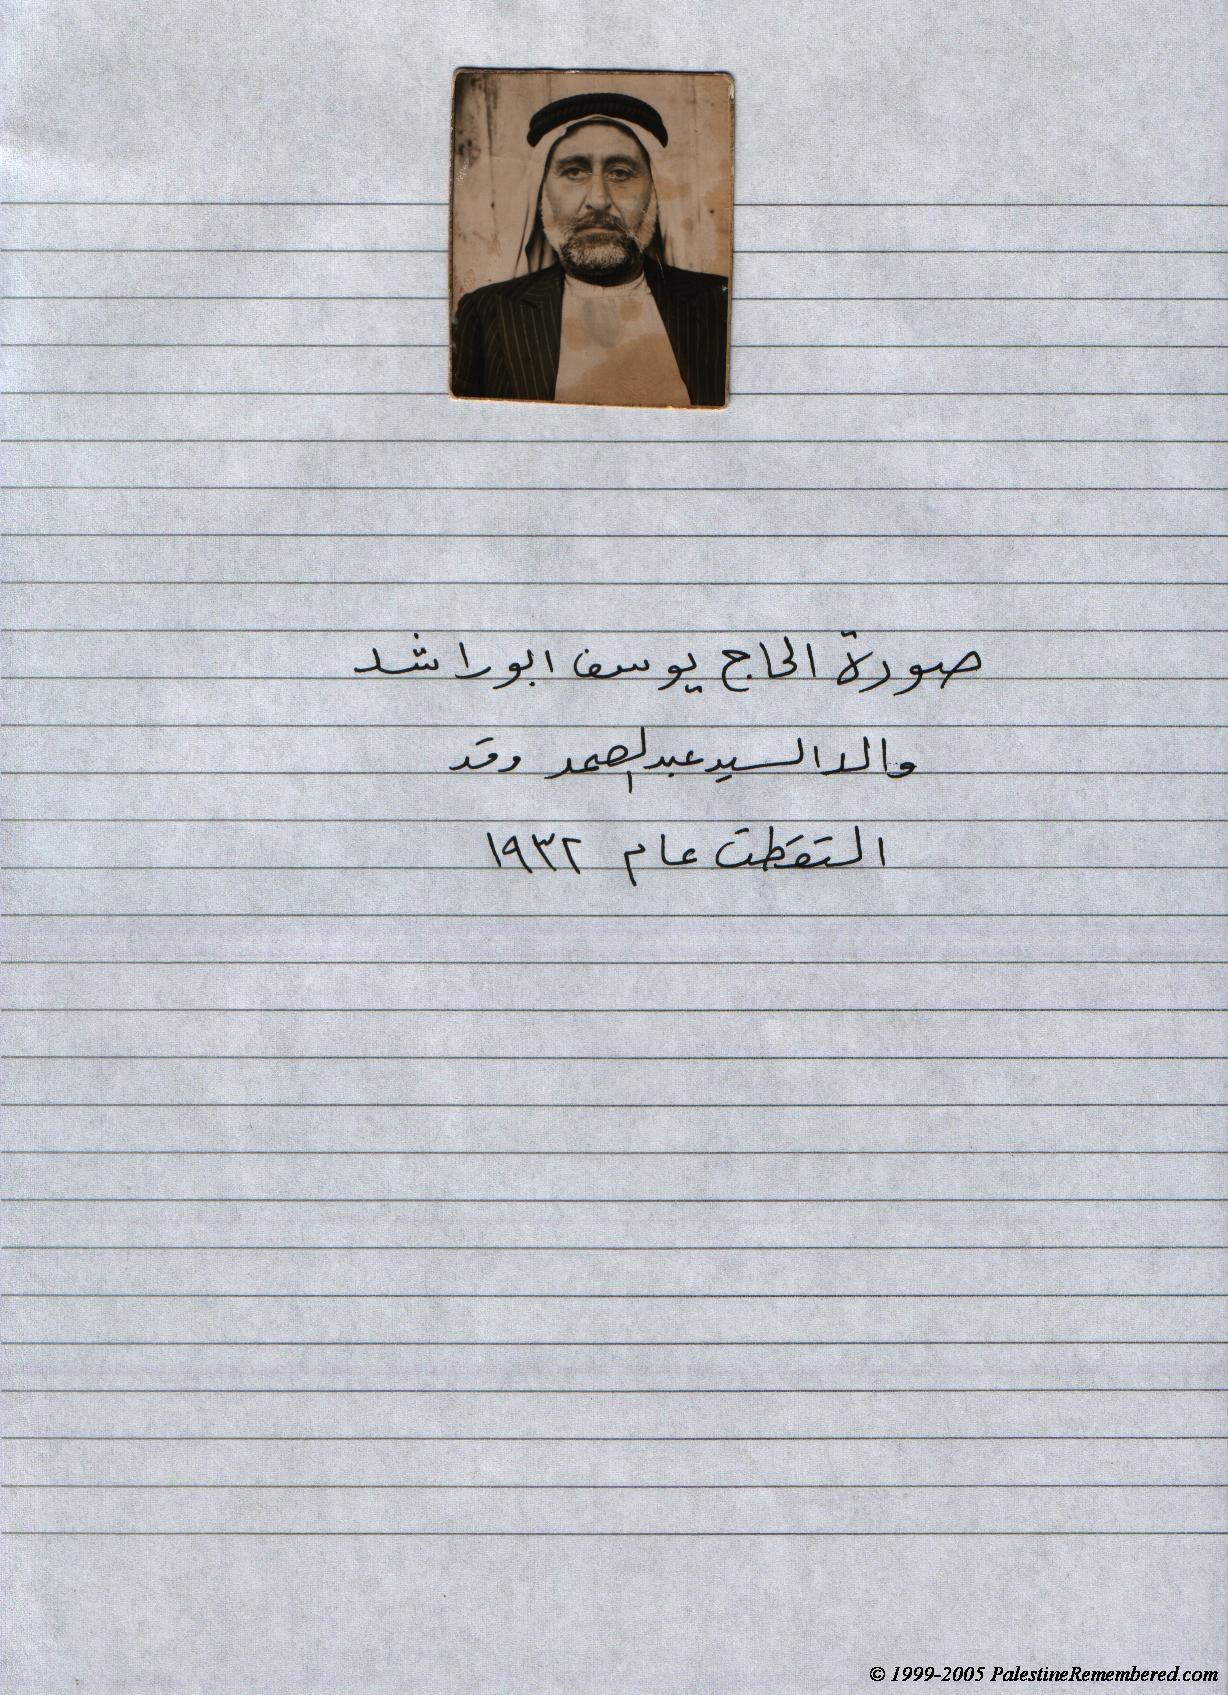 صورة الحاج يوسف ابوراشد
والد السيد عبدالصمد وقد
التقطت عام ١٩٣٢
© 1999-2005 PalestineRemembered.com